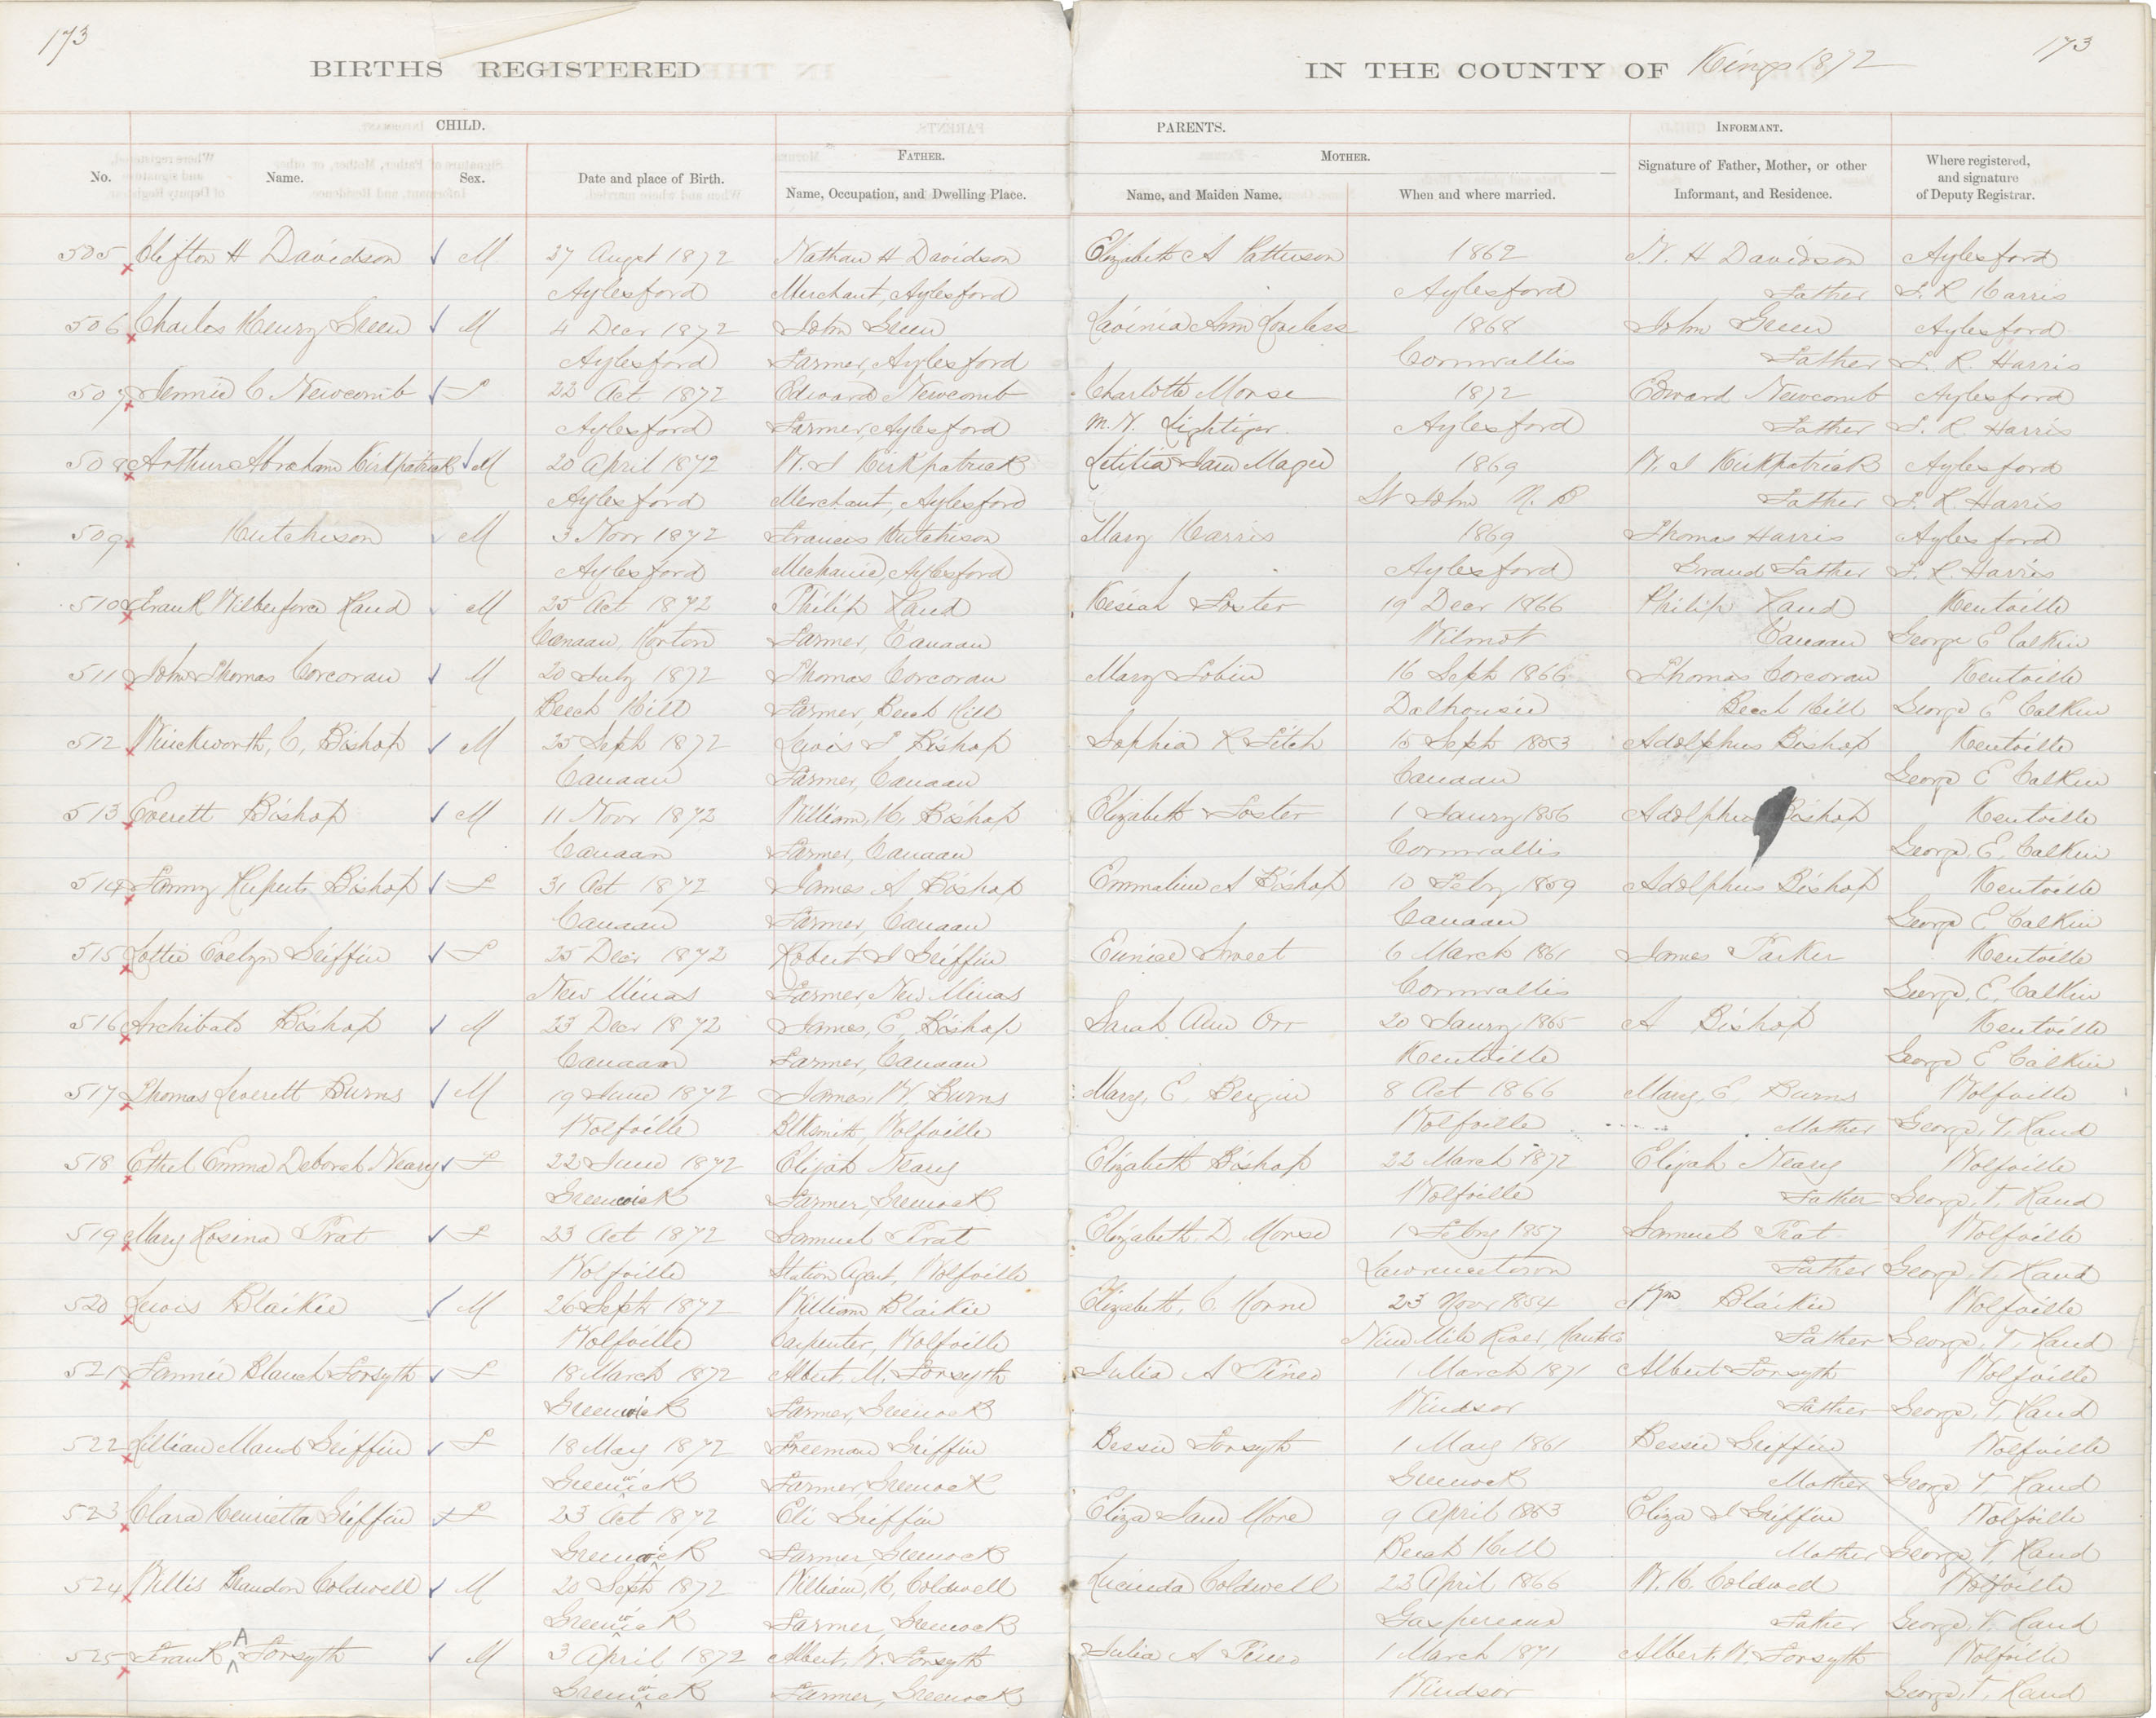 173
173
BIRTHS REGISTERED
IN THE COUNTY OF Kings 1872
CHILD.
PARENTS.
INFORMANT.
FATHER.
MOTHER.
No.
Name.
Sex.
Date and place of Birth.
Name, Occupation, and Dwelling Place.
Name, and Maiden Name.
When and where married.
Signature of Father, Mother, or other
Informant, and Residence.
Where registered,
and signature
of Deputy Registrar.
505 Clifton H Davidson M 27 Augst 1872 Nathan H Davidson Elizabeth A Patterson 1862 N. H Davidson Aylesford
Aylesford Merchant, Aylesford Aylesford Father L R Harris
506 Charles Henry Green M 4 Decr 1872 John Green Lavinia Ann Loveless 1868 John Green Aylesford
Aylesford Farmer, Aylesford Cornwallis Father L. R. Harris
507 Jennie C Newcomb F 22 Oct 1872 Edward Newcomb Charlotte Morse 1872 Edward Newcomb Aylesford
Aylesford Farmer, Aylesford M. N. Aylesford Father L. R. Harris
508 Arthur Abraham Kirkpatrick M 20 April 1872 W. J Kirkpatrick Letitia Jane Magee 1869 W. J Kirkpatrick Aylesford
Aylesford Merchant, Aylesford St John N. B Father L. R. Harris
509 Hutchison M 3 Novr 1872 Francis Hutchison Mary Harris 1869 Thomas Harris Aylesford
Aylesford Mechanic, Aylesford Aylesford Grand Father L. R. Harris
510 Frank Wilberforce Rand M 25 Oct 1872 Philip Rand Kesiah Foster 19 Decr 1866 Philip Rand Kentville
Canaan, Horton Farmer, Canaan Wilmot Canaan George E Calkin
511 John Thomas Corcoran M 20 July 1872 Thomas Corcoran Mary Tobin 16 Sept 1866 Thomas Corcoran Kentville
Beech Hill Farmer, Beech Hill Dalhousie Beech Hill George E Calkin
512 Winckworth, C, Bishop M 25 Sept 1872 Lewis J Bishop Sophia R Fitch 15 Sept 1853 Adolphus Bishop Kentville
Canaan Farmer, Canaan Canaan George E Calkin
513 Everett Bishop M 11 Novr 1872 William, H, Bishop Elizabeth Foster 1 Janry 1856 Adolphus Bishop Kentville
Canaan Farmer, Canaan Cornwallis George, E, Calkin
514 Fanny Ruperta Bishop F 31 Oct 1872 James A Bishop Emmaline A Bishop 10 Febry 1859 Adolphus Bishop Kentville
Canaan Farmer, Canaan Canaan George E Calkin
515 Lottie Evelyn Griffin F 25 Decr 1872 Robert J Griffin Eunice Sweet 6 March 1861 James Parker Kentville
New Minas Farmer, New Minas Cornwallis George, E, Calkin
516 Archibald Bishop M 23 Decr 1872 James, E, Bishop Sarah Ann Orr 20 Janry 1865 A Bishop Kentville
Canaan Farmer, Canaan Kentville George E Calkin
517 Thomas Leverett Burns M 19 June 1872 James, W, Burns Mary, E, Bergin 8 Oct 1866 Mary, E, Burns Wolfville
Wolfville Blksmith, Wolfville Wolfville Mother George, T, Rand
518 Ethel Emma Deborah Neary F 22 June 1872 Elijah Neary Elizabeth Bishop 22 March 1872 Elijah Neary Wolfville
Greenwick Farmer, Greenock Wolfville Father George, T, Rand
519 Mary Rosina Prat F 23 Oct 1872 Samuel Prat Elizabeth, D, Morse 1 Febry 1857 Samuel Prat Wolfville
Wolfville Station Agent, Wolfville Lawrencetown Father George, T, Rand
520 Lewis Blaikie M 26 Sept 1872 William Blaikie Elizabeth, C, Horne 23 Novr 1854 Wm Blaikie Wolfville
Wolfville Carpenter, Wolfville Nine Mile River, Hants Co Father George, T, Rand
521 Fannie Blanch Forsyth F 18 March 1872 Albert, M, Forsyth Julia A Pineo 1 March 1871 Albert Forsyth Wolfville
Greenwick Farmer, Greenock Windsor Father George, T, Rand
522 Lillian Maud Griffin F 18 May 1872 Freeman Griffin Bessie Forsyth 1 May 1861 Bessie Griffin Wolfville
Greenwick Farmer, Greenock Greenock Mother George T, Rand
523 Clara Henrietta Griffin F 23 Oct 1872 Eli Griffin Eliza Jane More 9 April 1863 Eliza J Griffin Wolfville
Greenwick Farmer, Greenock Beach Hill Mother George, T, Rand
524 Willis Blandon Coldwell M 20 Sept 1872 William, H, Coldwell Lucinda Coldwell 22 April 1866 W. H. Coldwell Wolfville
Greenwick Farmer, Greenock Gaspereaux Father George, T, Rand
525 Frank A Forsyth M 3 April 1872 Albert, W. Forsyth Julia A Pineo 1 March 1871 Albert. W, Forsyth Wolfville
Greenwick Farmer, Greenock Windsor George, T, Rand